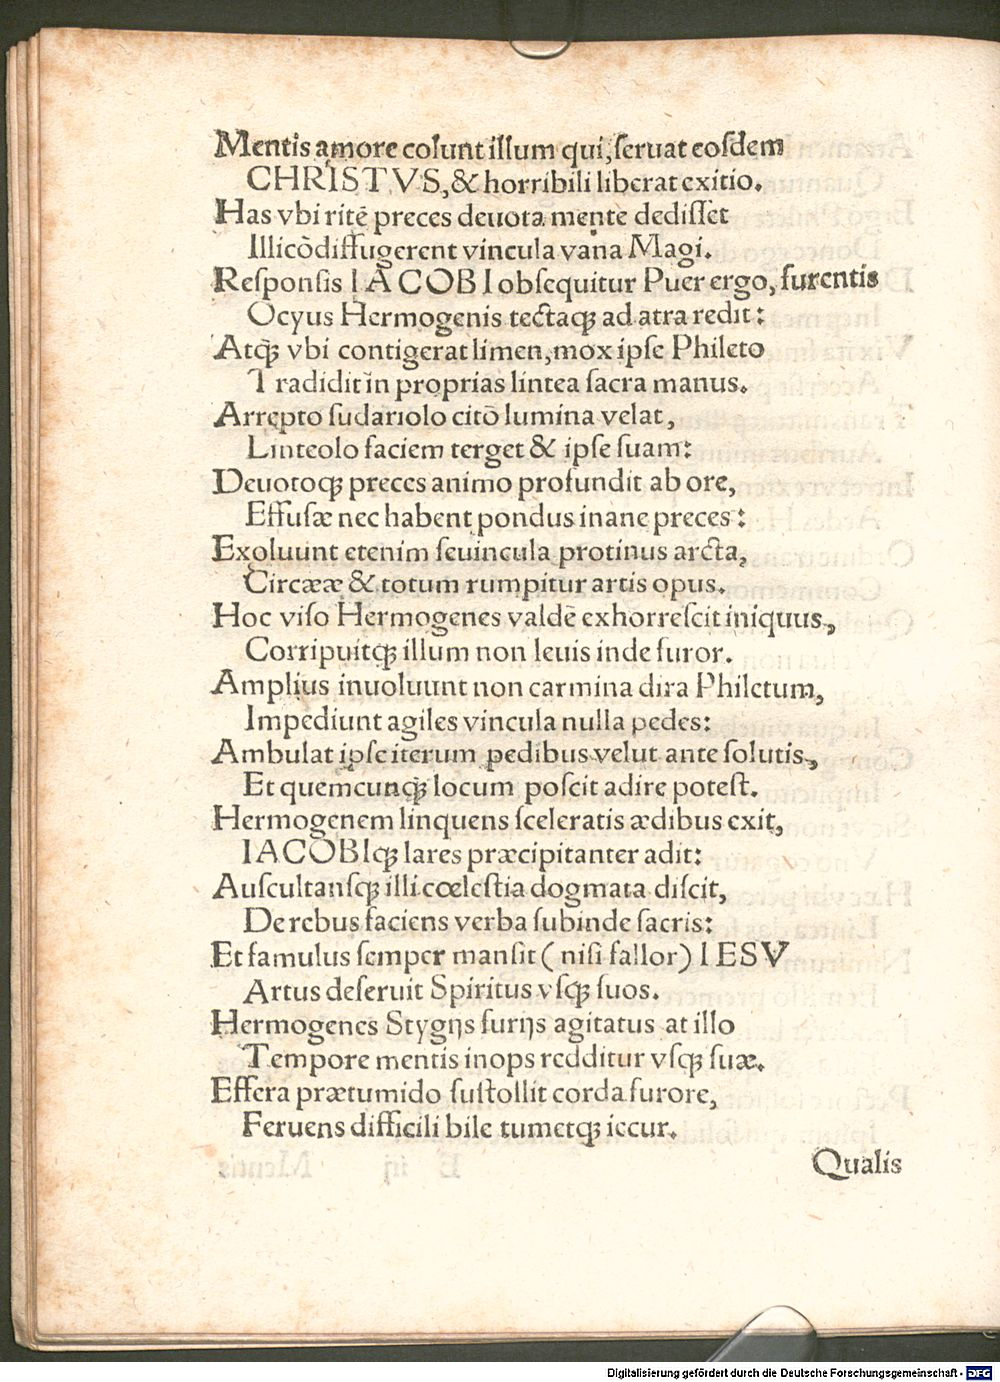 Mentis amore colunt illum qui, ſeruat eoſdem
CHRISTVS, & horribili liberat exitio.
Has vbi ritè preces deuota mente dediſſet
Illicò diffugerent vincula vana Magi.
Reſponſis IACOBI obſequitur Puer ergo, furentis
Ocyus Hermogenis tectaqꝫ ad atra redit:
Atqꝫ vbi contigerat limen, mox ipſe Phileto
Tradidit in proprias lintea ſacra manus.
Arrepto ſudariolo citò lumina velat,
Linteolo faciem terget & ipſe ſuam:
Deuotoqꝫ preces animo profundit ab ore,
Effuſæ nec habent pondus inane preces:
Exoluunt etenim ſe vincula protinus arcta,
Circææ & totum rumpitur artis opus.
Hoc viſo Hermogenes valdè exhorreſcit iniquus,
Corripuitqꝫ illum non leuis inde furor.
Amplius inuoluunt non carmina dira Philetum,
Impediunt agiles vincula nulla pedes:
Ambulat ipſe iterum pedibus velut ante ſolutis,
Et quemcunqꝫ locum poſcit adire poteſt.
Hermogenem linquens ſceleratis ædibus exit,
IACOBIqꝫ lares præcipitanter adit:
Auſcultanſqꝫ illi cœleſtia dogmata diſcit,
De rebus faciens verba ſubinde ſacris:
Et famulus ſemper manſit (niſi fallor) IESV
Artus deſeruit Spiritus vſqꝫ ſuos.
Hermogenes Stygijs furijs agitatus at illo
Tempore mentis inops redditur vſqꝫ ſuæ.
Effera prætumido ſuſtollit corda furore,
Feruens difficili bile tumetqꝫ iecur.
Qualis
Digitalisierung gefördert durch die Deutsche Forschungsgemeinschaft - DFG